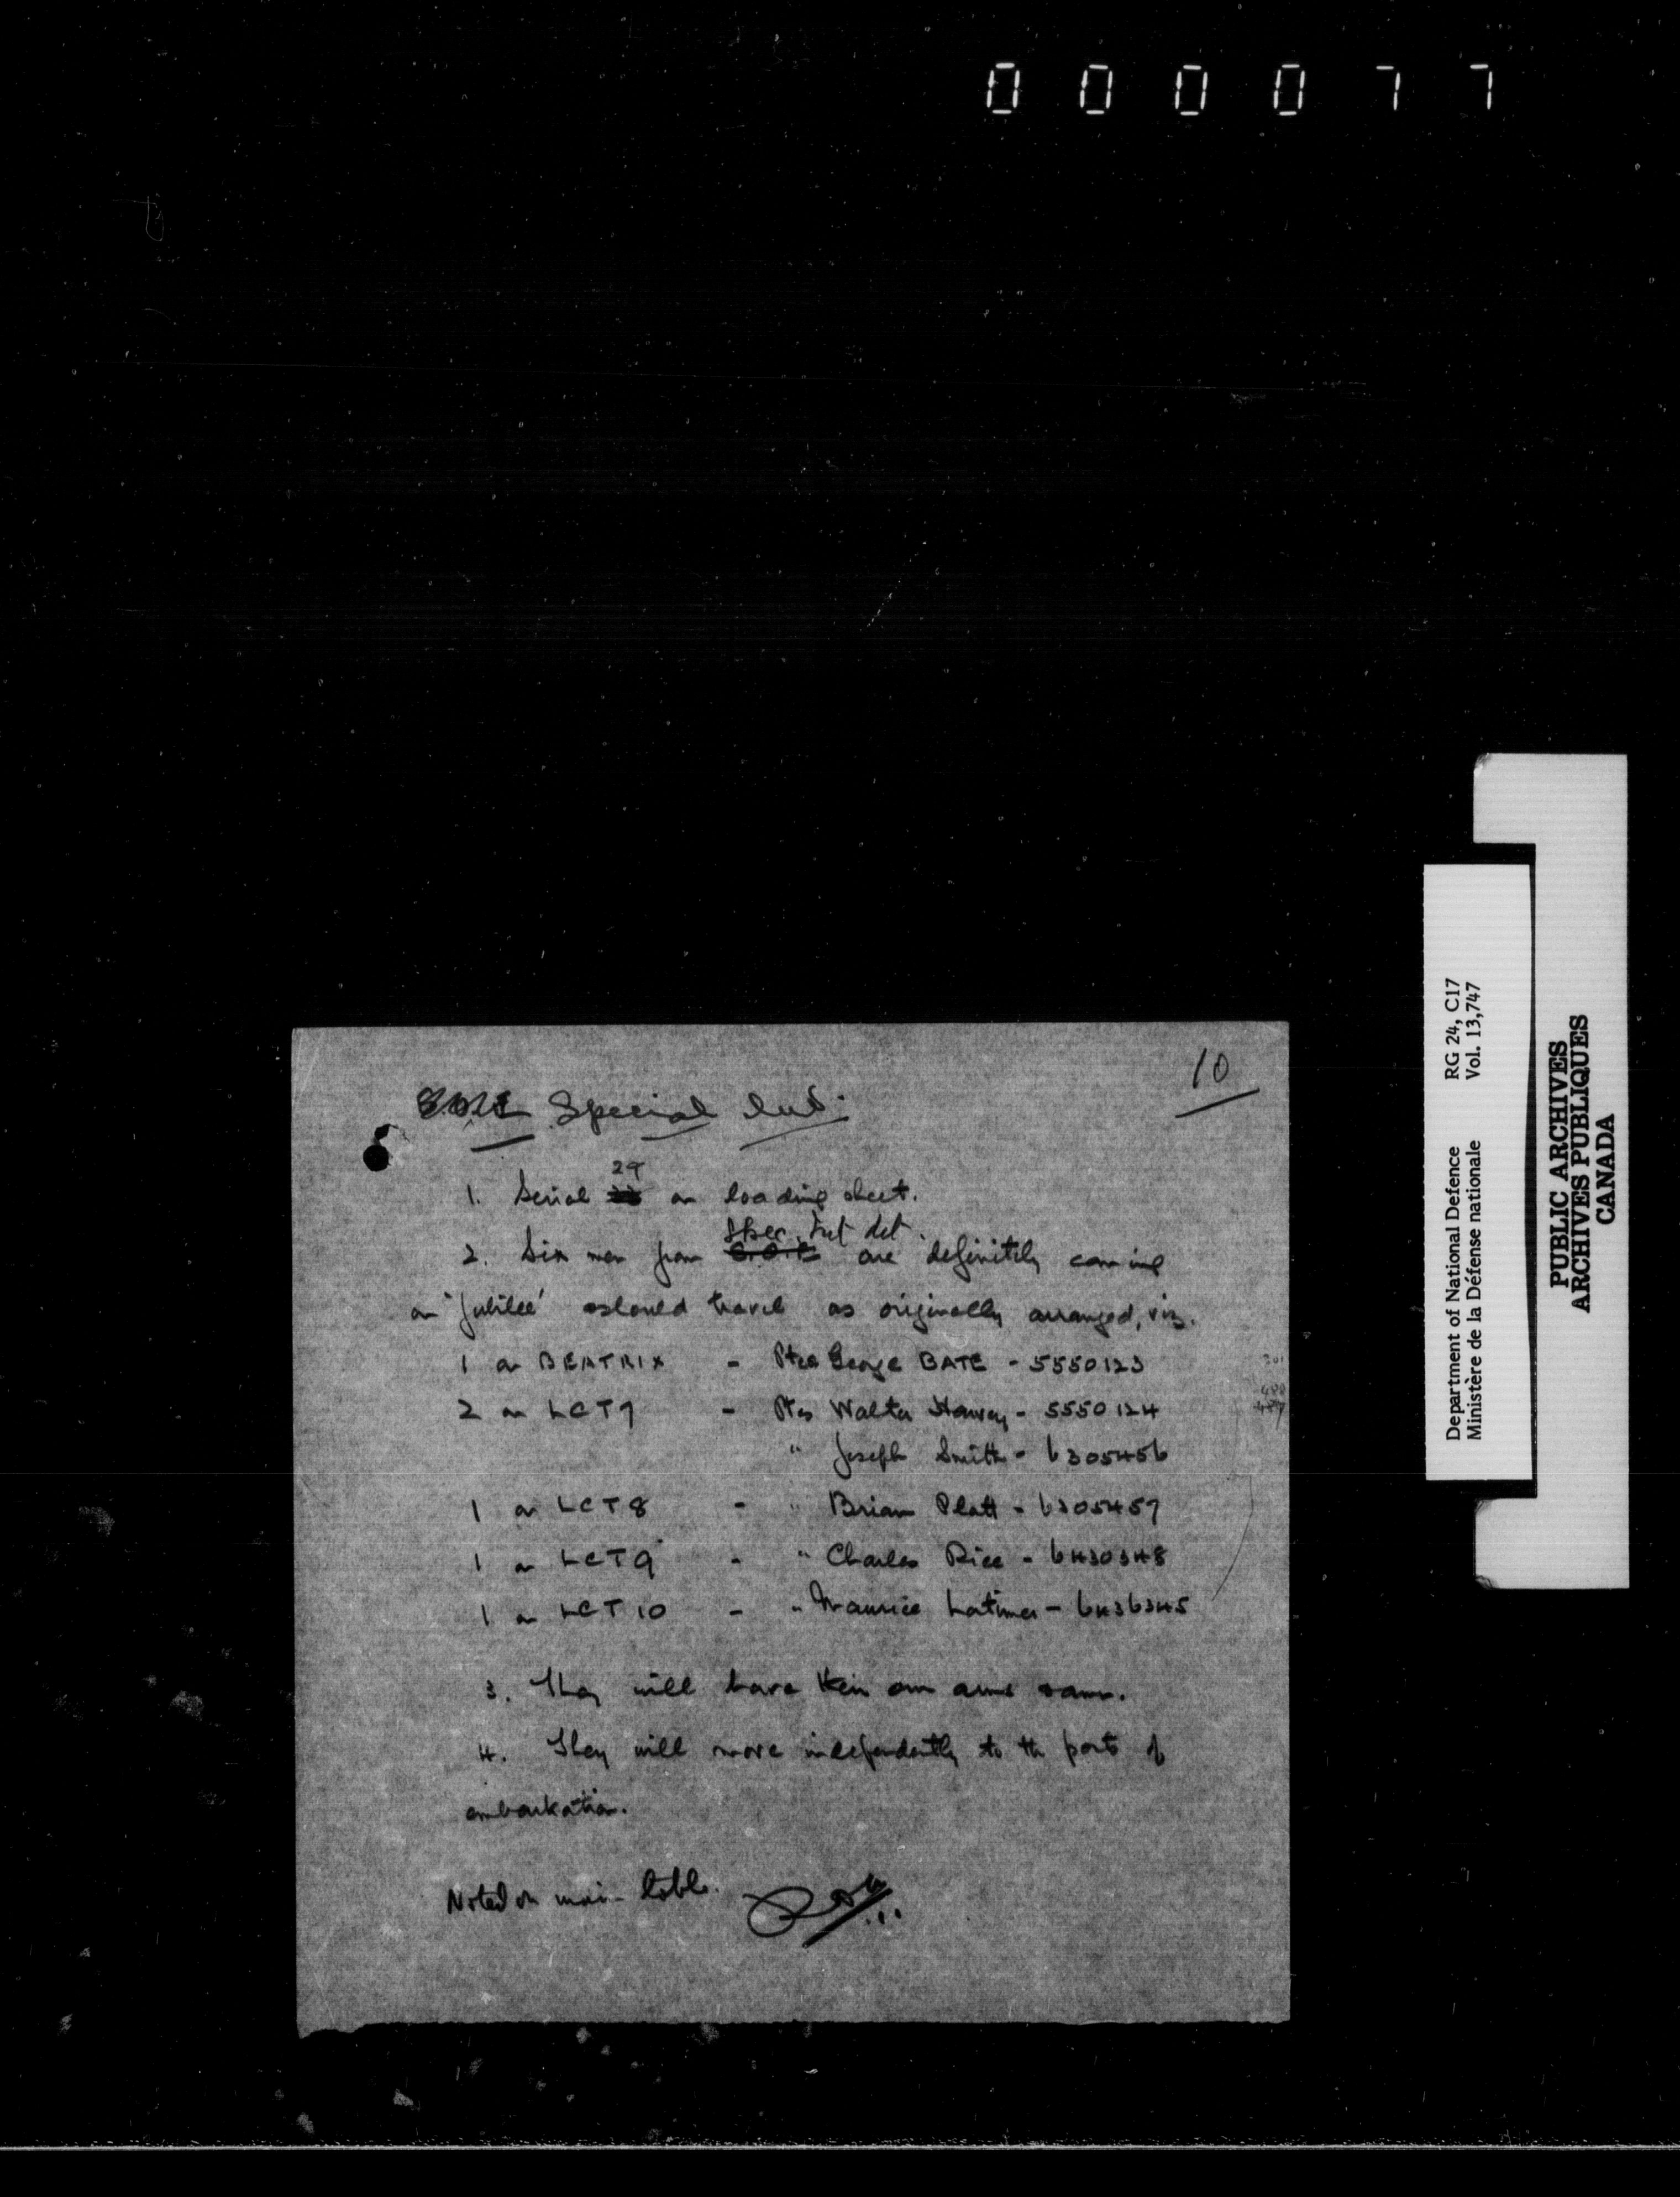 000077
10
Special Int.
29
1. Serial on loading sheet.
Spec. Int det.
2. Six men from S.O.E are definitely coming
on 'Jubilee' & should travel as originally arranged, viz.
1 on BEATRIX - Pte George BATE - 5550123
2 on LCT7 - Ptes Walter - 5550124
" Joseph Smith - 6305456
1 on LCT8 - " Brian Platt - 6305457
1 on LCT9 - " Charles Rice - 6430348
1 on LCT10 - " Maurice Latimer - 6436345
3. They will have their own arms & amn.
4. They will move independently to the ports of
embarkation.
Noted on main table.
Department of National Defence RG 24, C17
Ministère de la Défense nationale Vol. 13,747
PUBLIC ARCHIVES
ARCHIVES PUBLIQUES
CANADA